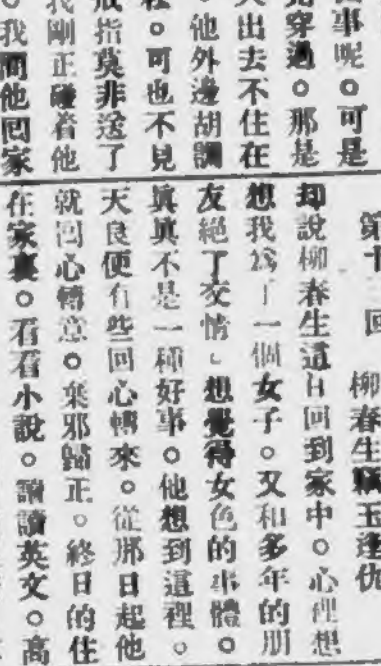 事呢。可是
穿過。那是
出去不住在
。他外邊胡調
。可也不見
戒指莫非送了
我剛正碰着他
。我問他回家
第十二回　柳春生騙玉逢仇
却說柳春生這日回到家中。心裡想
想我爲了一個女子。又和多年的朋
友絕了交情。想覺得女色的事體。
眞眞不是一種好事。他想到這裡。
天良便有些回心轉來。從那日起他
就回心轉意。棄邪歸正。終日的住
在家裏。看看小說。讀讀英文。高